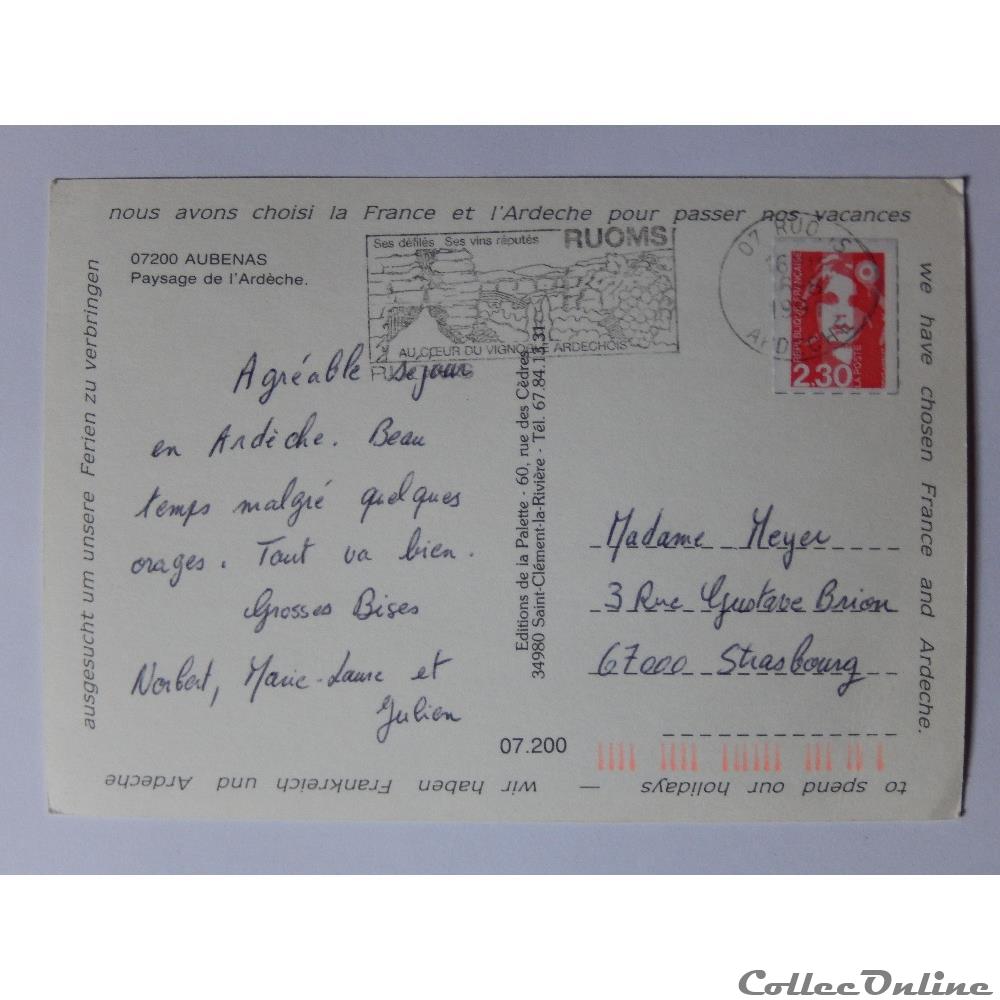 nous avons choisi la France et l'Ardeche pour passer nos vacances
we have chosen France and Ardeche.
to spend our holidays — wir haben Frankreich und Ardeche
ausgesucht um unsere Ferien zu verbringen
07200 AUBENAS
Paysage de l'Ardèche.
Ses défilés Ses vins réputés RUOMS
AU CŒUR DU VIGNOBLE ARDECHOIS
07 RUOMS
16
ARDECHE
RÉPUBLIQUE FRANÇAISE
2,30
LA POSTE
Agréable séjour
en Ardèche. Beau
temps malgré quelques
orages. Tout va bien.
Grosses Bises
Norbert, Marie-Laure et
Julien
Editions de la Palette - 60, rue des Cèdres
34980 Saint-Clément-la-Rivière - Tél. 67.84.13.31
Madame Meyer
3 Rue Gustave Brion
67000 Strasbourg
07.200
CollecOnline